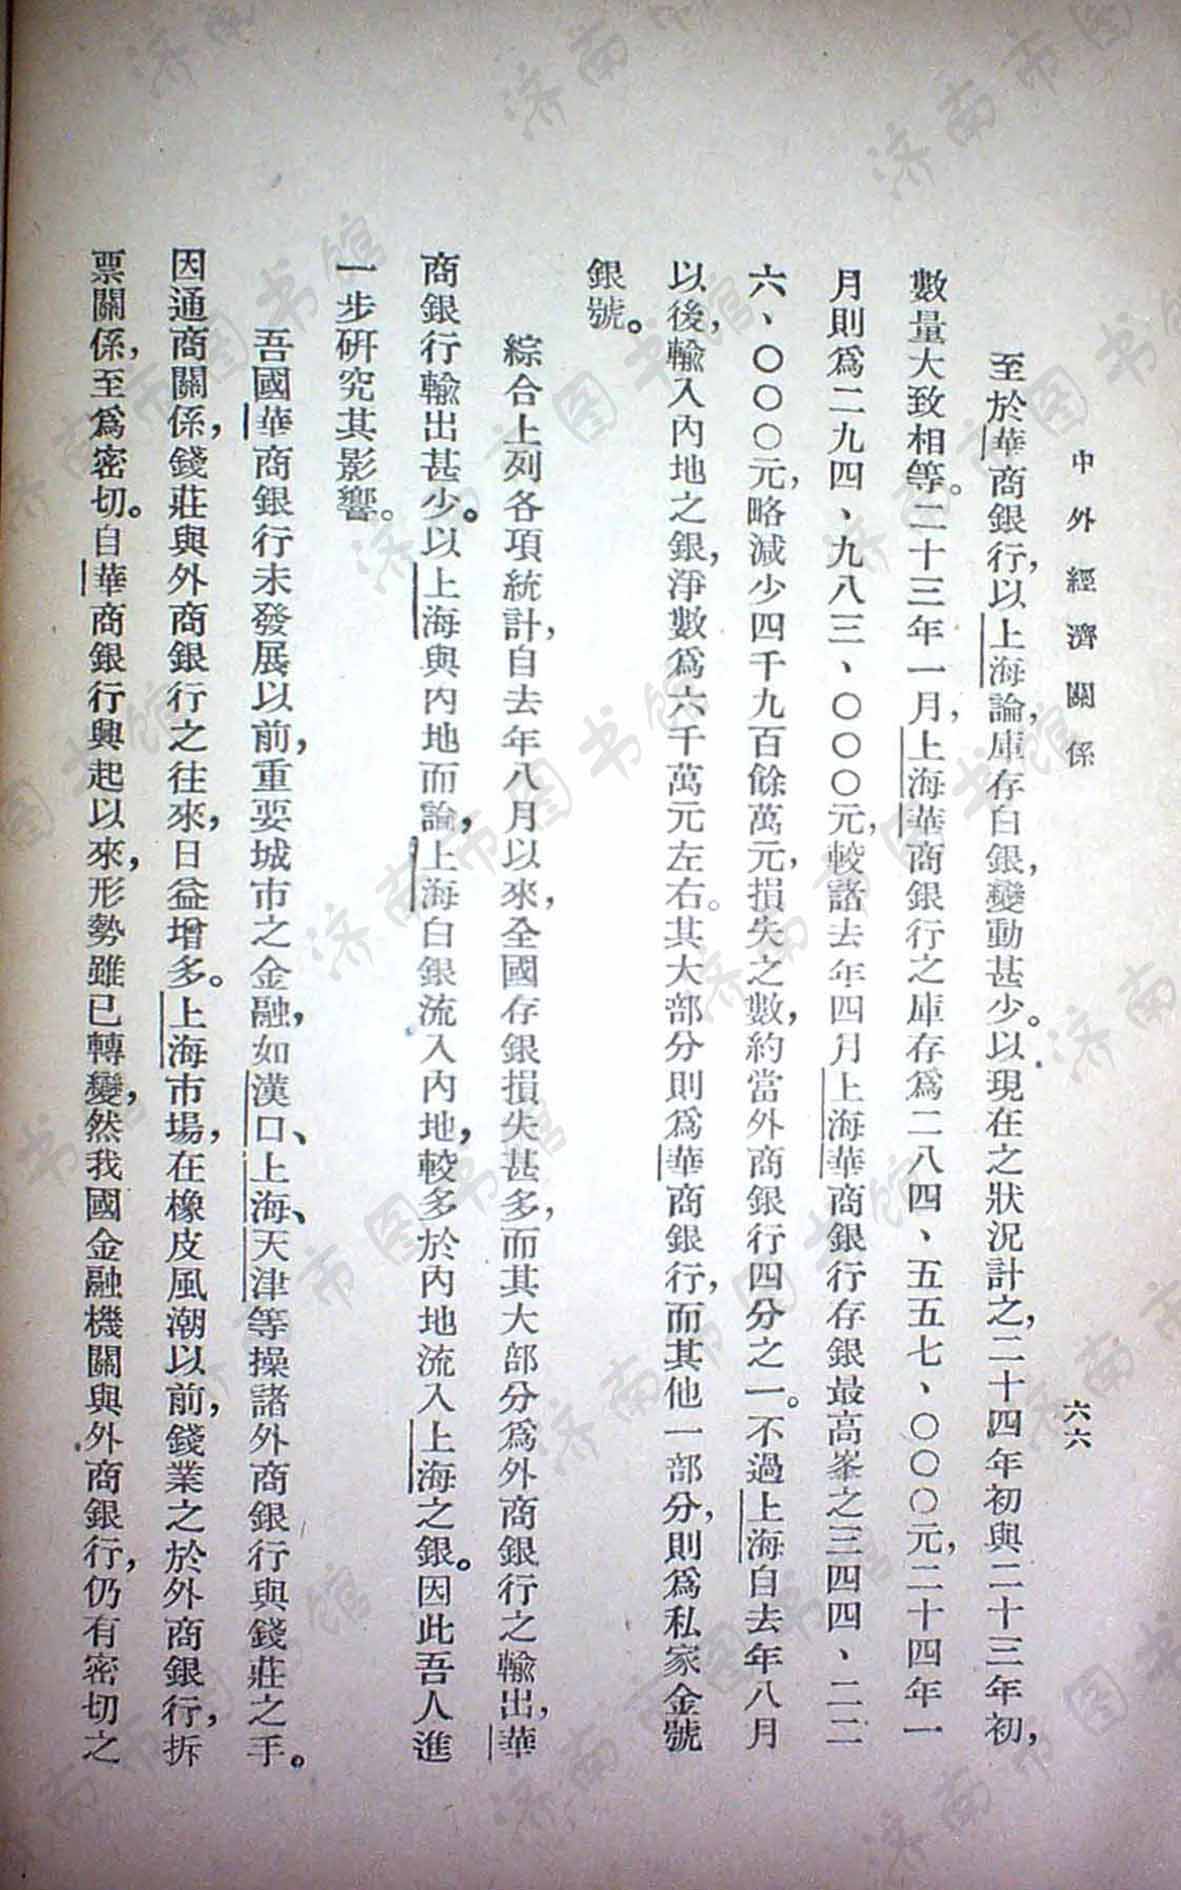 中外經濟關係
六六
至於華商銀行，以上海論，庫存白銀，變動甚少。以現在之狀況計之，二十四年初與二十三年初，
數量大致相等。二十三年一月，上海華商銀行之庫存爲二八四、五五七、〇〇〇元，二十四年一
月則爲二九四、九八三、〇〇〇元，較諸去年四月上海華商銀行存銀最高峯之三四四、二二
六、〇〇〇元，略減少四千九百餘萬元，損失之數，約當外商銀行四分之一。不過上海自去年八月
以後，輸入內地之銀，淨數爲六千萬元左右。其大部分則爲華商銀行，而其他一部分，則爲私家金號
銀號。
綜合上列各項統計，自去年八月以來，全國存銀損失甚多，而其大部分爲外商銀行之輸出，華
商銀行輸出甚少。以上海與內地而論，上海白銀流入內地，較多於內地流入上海之銀。因此吾人進
一步研究其影響。
吾國華商銀行未發展以前，重要城市之金融，如漢口、上海、天津等操諸外商銀行與錢莊之手。
因通商關係，錢莊與外商銀行之往來，日益增多。上海市場，在橡皮風潮以前，錢業之於外商銀行，拆
票關係，至爲密切。自華商銀行興起以來，形勢雖已轉變，然我國金融機關與外商銀行，仍有密切之
济南市图书馆